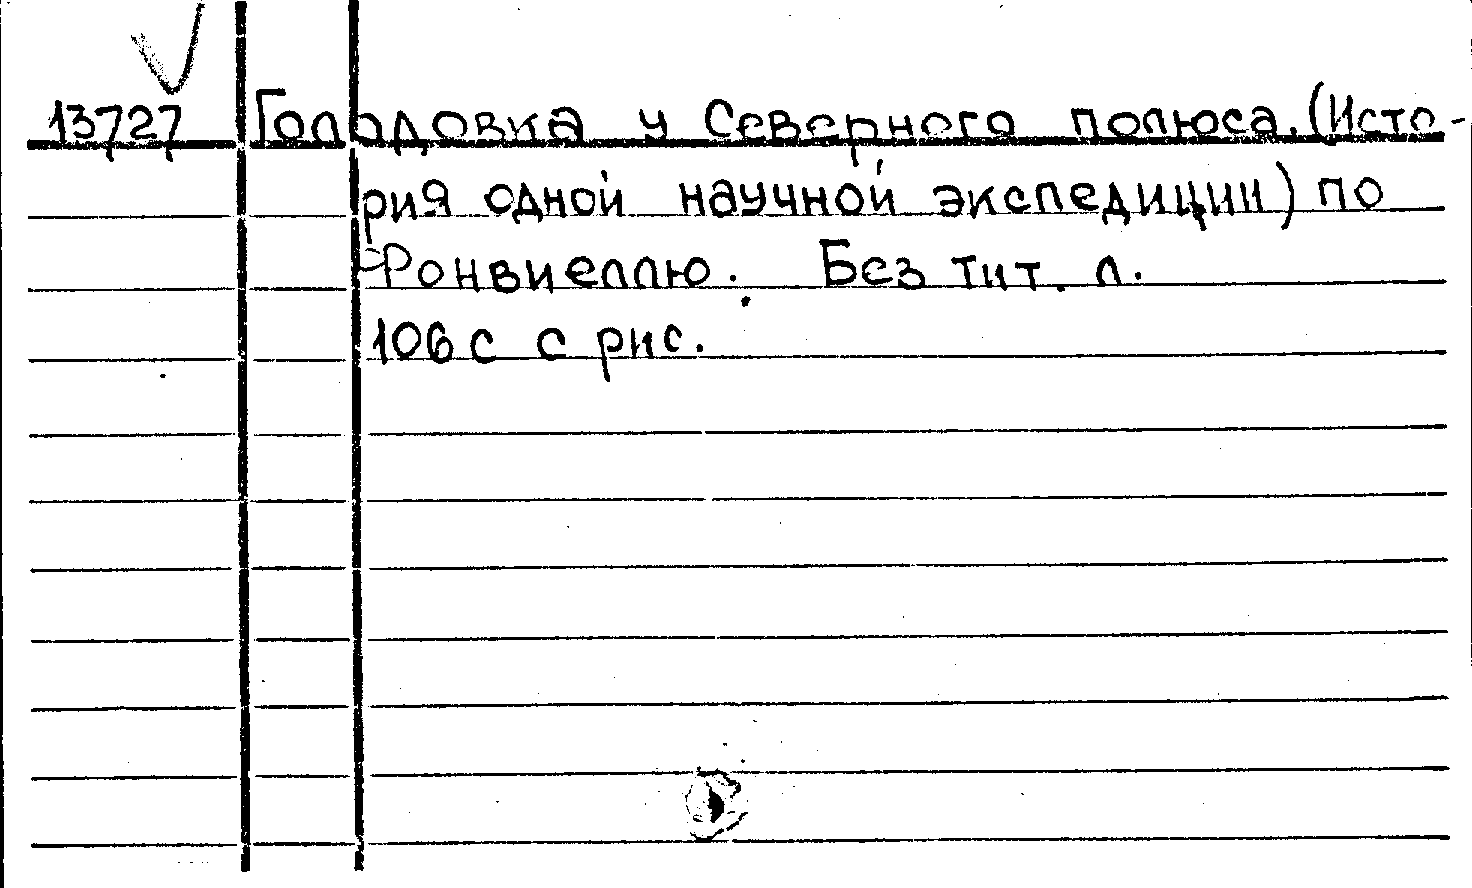 13727 Голодовка у Северного полюса. (Исто-
рия одной научной экспедиции) по
Фонвиеллю. Без тит. л.
106 с с рис.